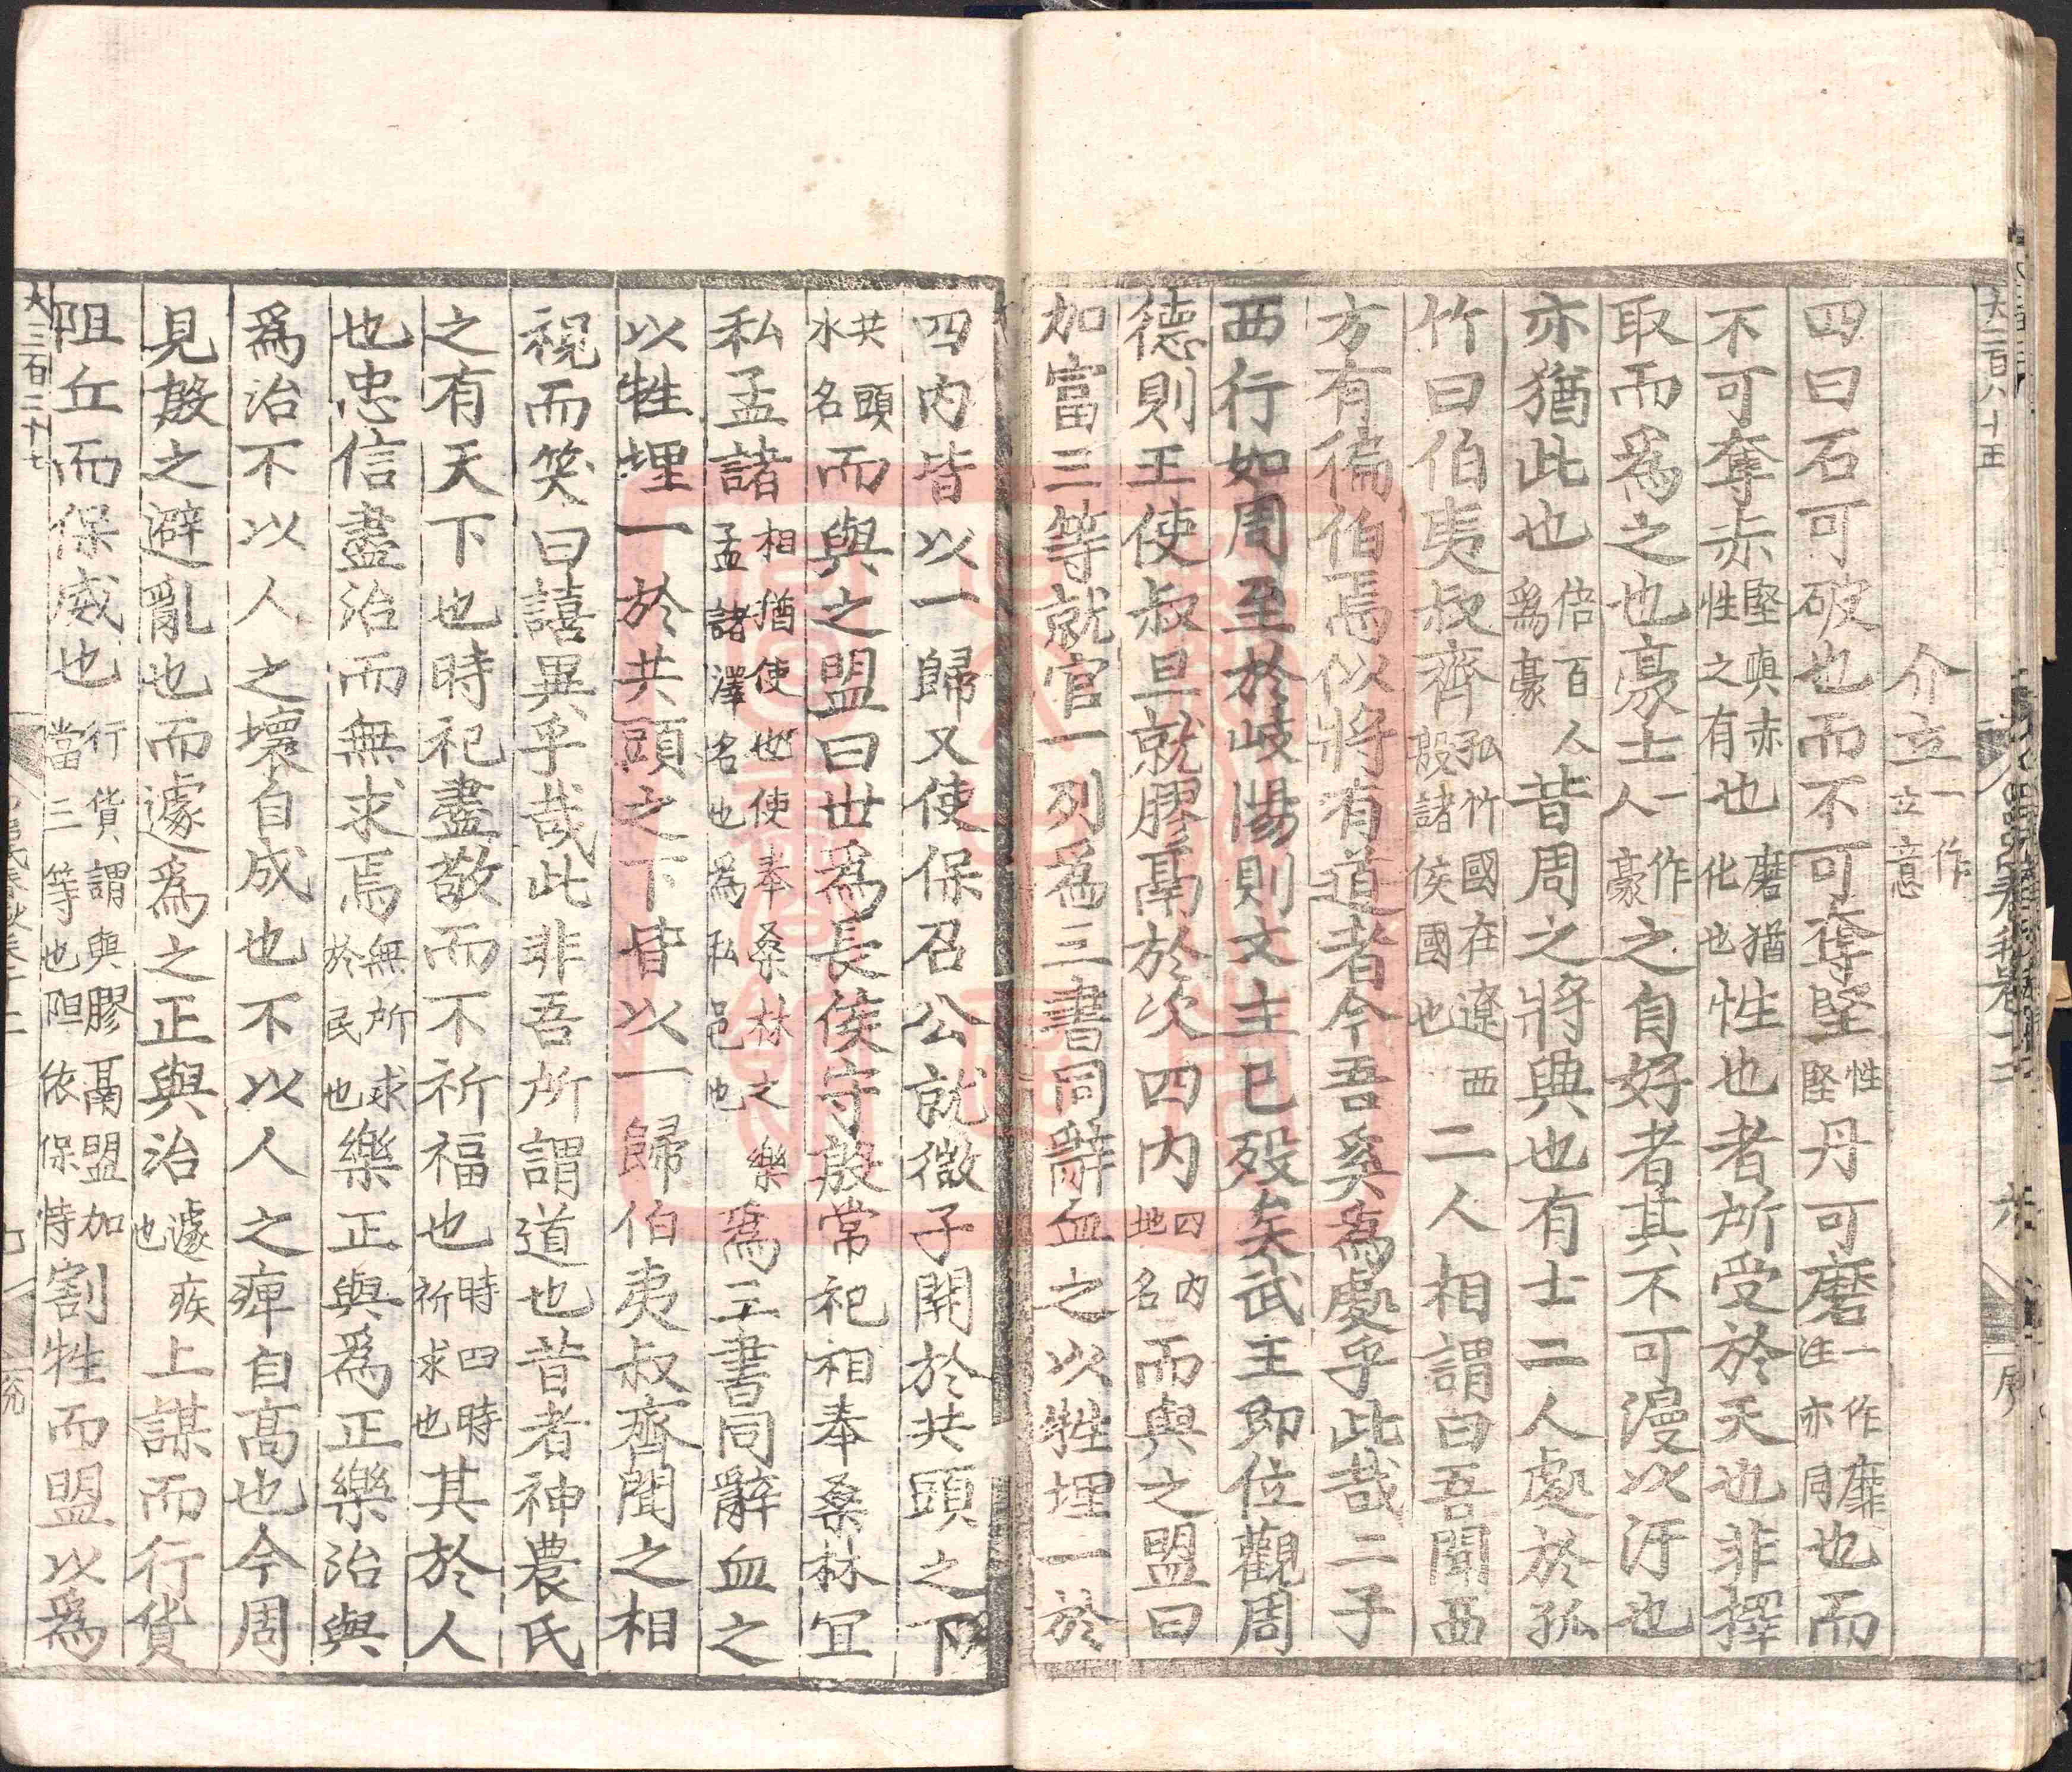 介立一作立意
四曰石可破也而不可奪堅性堅丹可磨一作靡注亦同也而
不可奪赤堅與赤性之有也磨猶化也性也者所受於天也非擇
取而爲之也豪士一作人豪之自好者其不可漫以汙也
亦猶此也倍百人爲豪昔周之將興也有士二人處於孤
竹曰伯夷叔齊孤竹國在遼西殷諸侯國也二人相謂曰吾聞西
方有徧伯焉似將有道者今吾奚爲處乎此哉二子
西行如周至於岐陽則文王已歿矣武王即位觀周
德則王使叔旦就膠鬲於次四內四內地名而與之盟曰
加富三等就官一列爲三書同辭血之以牲埋一於
四內皆以一歸又使保召公就微子開於共頭之下
共頭水名而與之盟曰世爲長侯守殷常祀相奉桑林宜
私孟諸相猶使也使奉桑林之樂孟諸澤名也爲私邑也爲三書同辭血之
以牲埋一於共頭之下皆以一歸伯夷叔齊聞之相
視而笑曰譆異乎哉此非吾所謂道也昔者神農氏
之有天下也時祀盡敬而不祈福也時四時祈求也其於人
也忠信盡治而無求焉無所求於民也樂正與爲正樂治與
爲治不以人之壞自成也不以人之痺自高也今周
見殷之避亂也而遽爲之正與治遽疾也上謀而行貨
阻丘而保威也行貨謂與膠鬲盟加當三等也阻依保恃割牲而盟以爲
大三百二十七